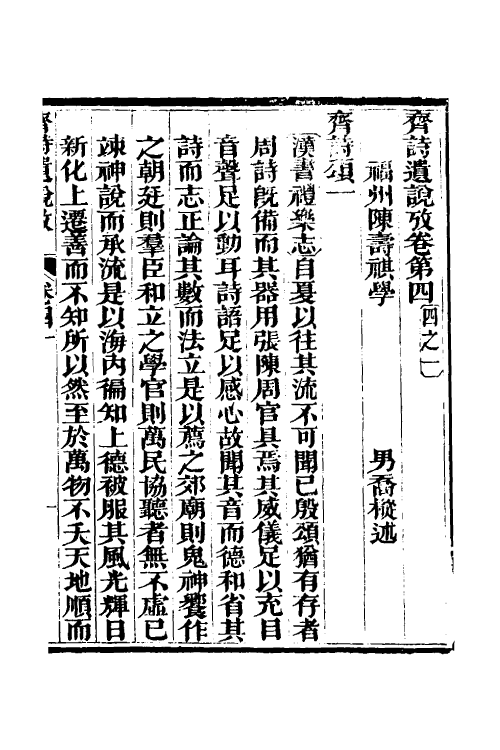 齊詩遺說攷卷第四 四之一
福州陳壽祺學 男喬樅述
齊詩頌一
漢書禮樂志自夏以往其流不可聞已殷頌猶有存者
周詩旣備而其器用張陳周官具焉其威儀足以充目
音聲足以動耳詩語足以感心故聞其音而德和省其
詩而志正論其數而法立是以薦之郊廟則鬼神饗作
之朝廷則羣臣和立之學官則萬民協聽者無不虛己
竦神說而承流是以海內徧知上德被服其風光輝日
新化上遷善而不知所以然至於萬物不夭天地順而
齊詩遺說攷 卷四 一